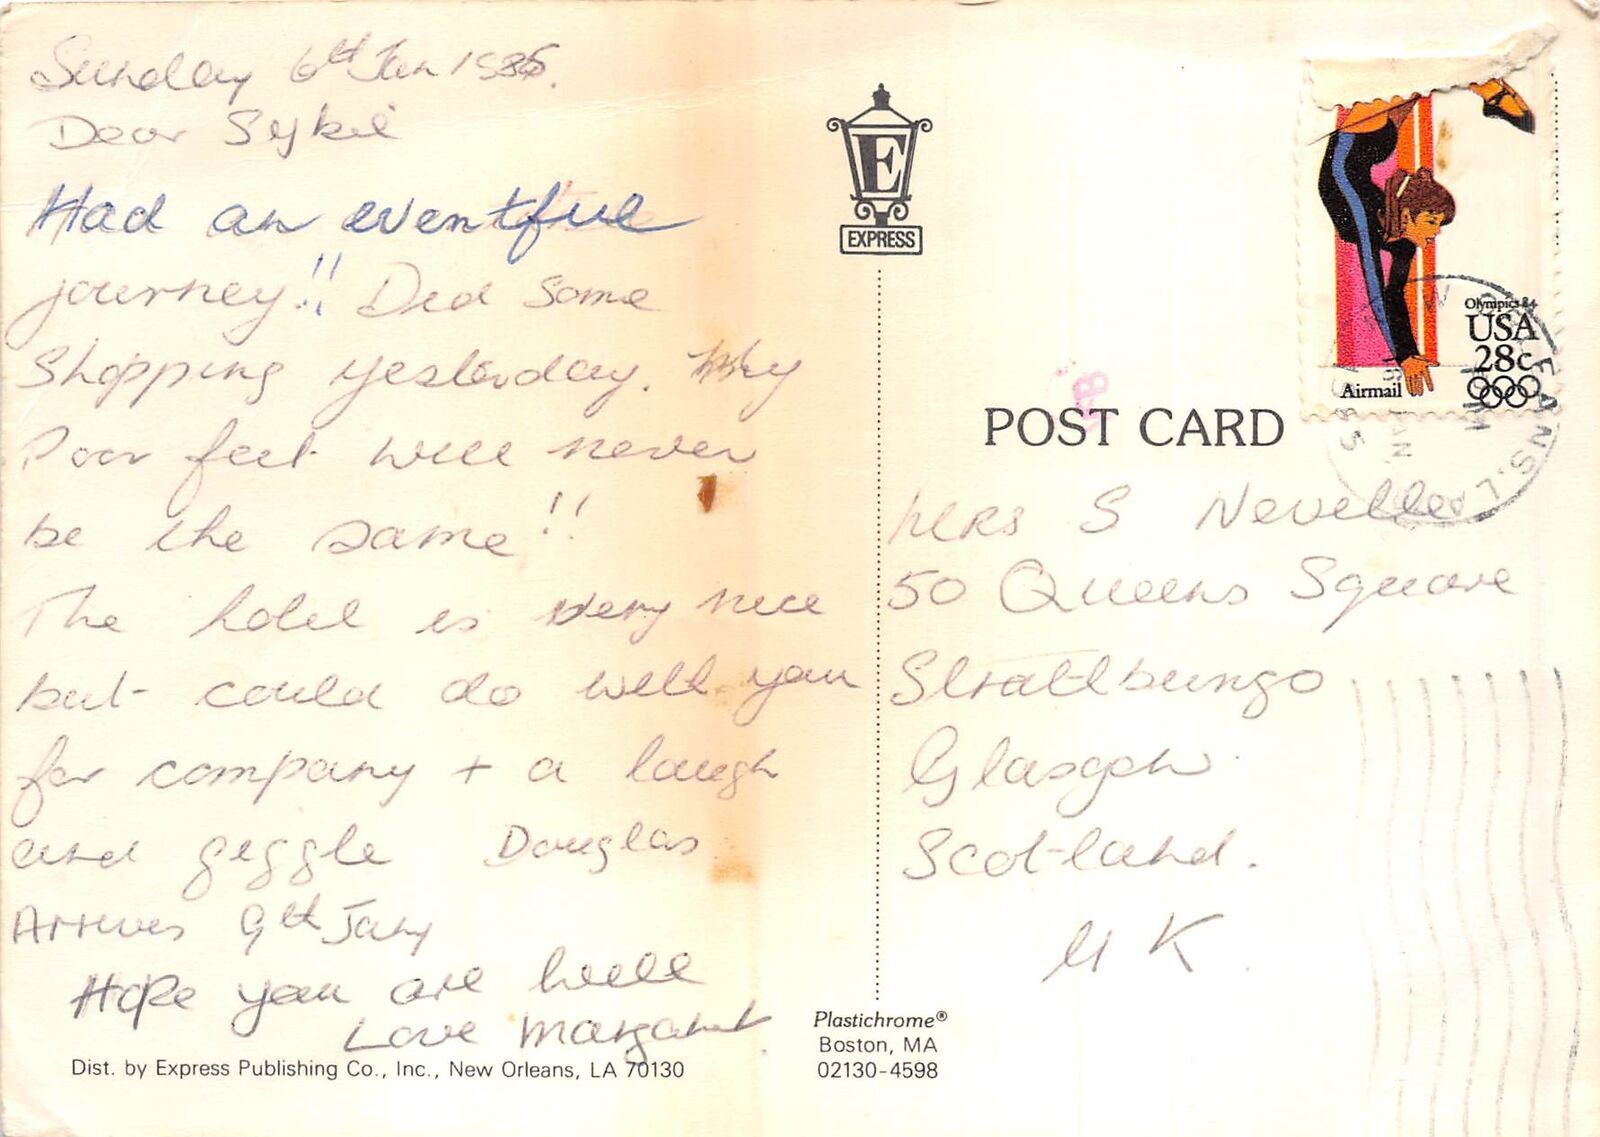 Sunday 6th Jan 1985.
Dear Sybil
Had an eventful
journey!! Did some
Shopping yesterday. My
Poor feet will never
be the same!!
The hotel is very nice
but could do with you
for company + a laugh
and geggle Douglas
Arrives 9th Jany
Hope you are well
Love Margaret
Dist. by Express Publishing Co., Inc., New Orleans, LA 70130
E
EXPRESS
Plastichrome®
Boston, MA
02130-4598
POST CARD
Olympics 84
USA
28c
Airmail
NEW ORLEANS, LA
PM
JAN
1985
Mrs S Neville
50 Queens Square
Strathbungo
Glasgow
Scotland.
U K.